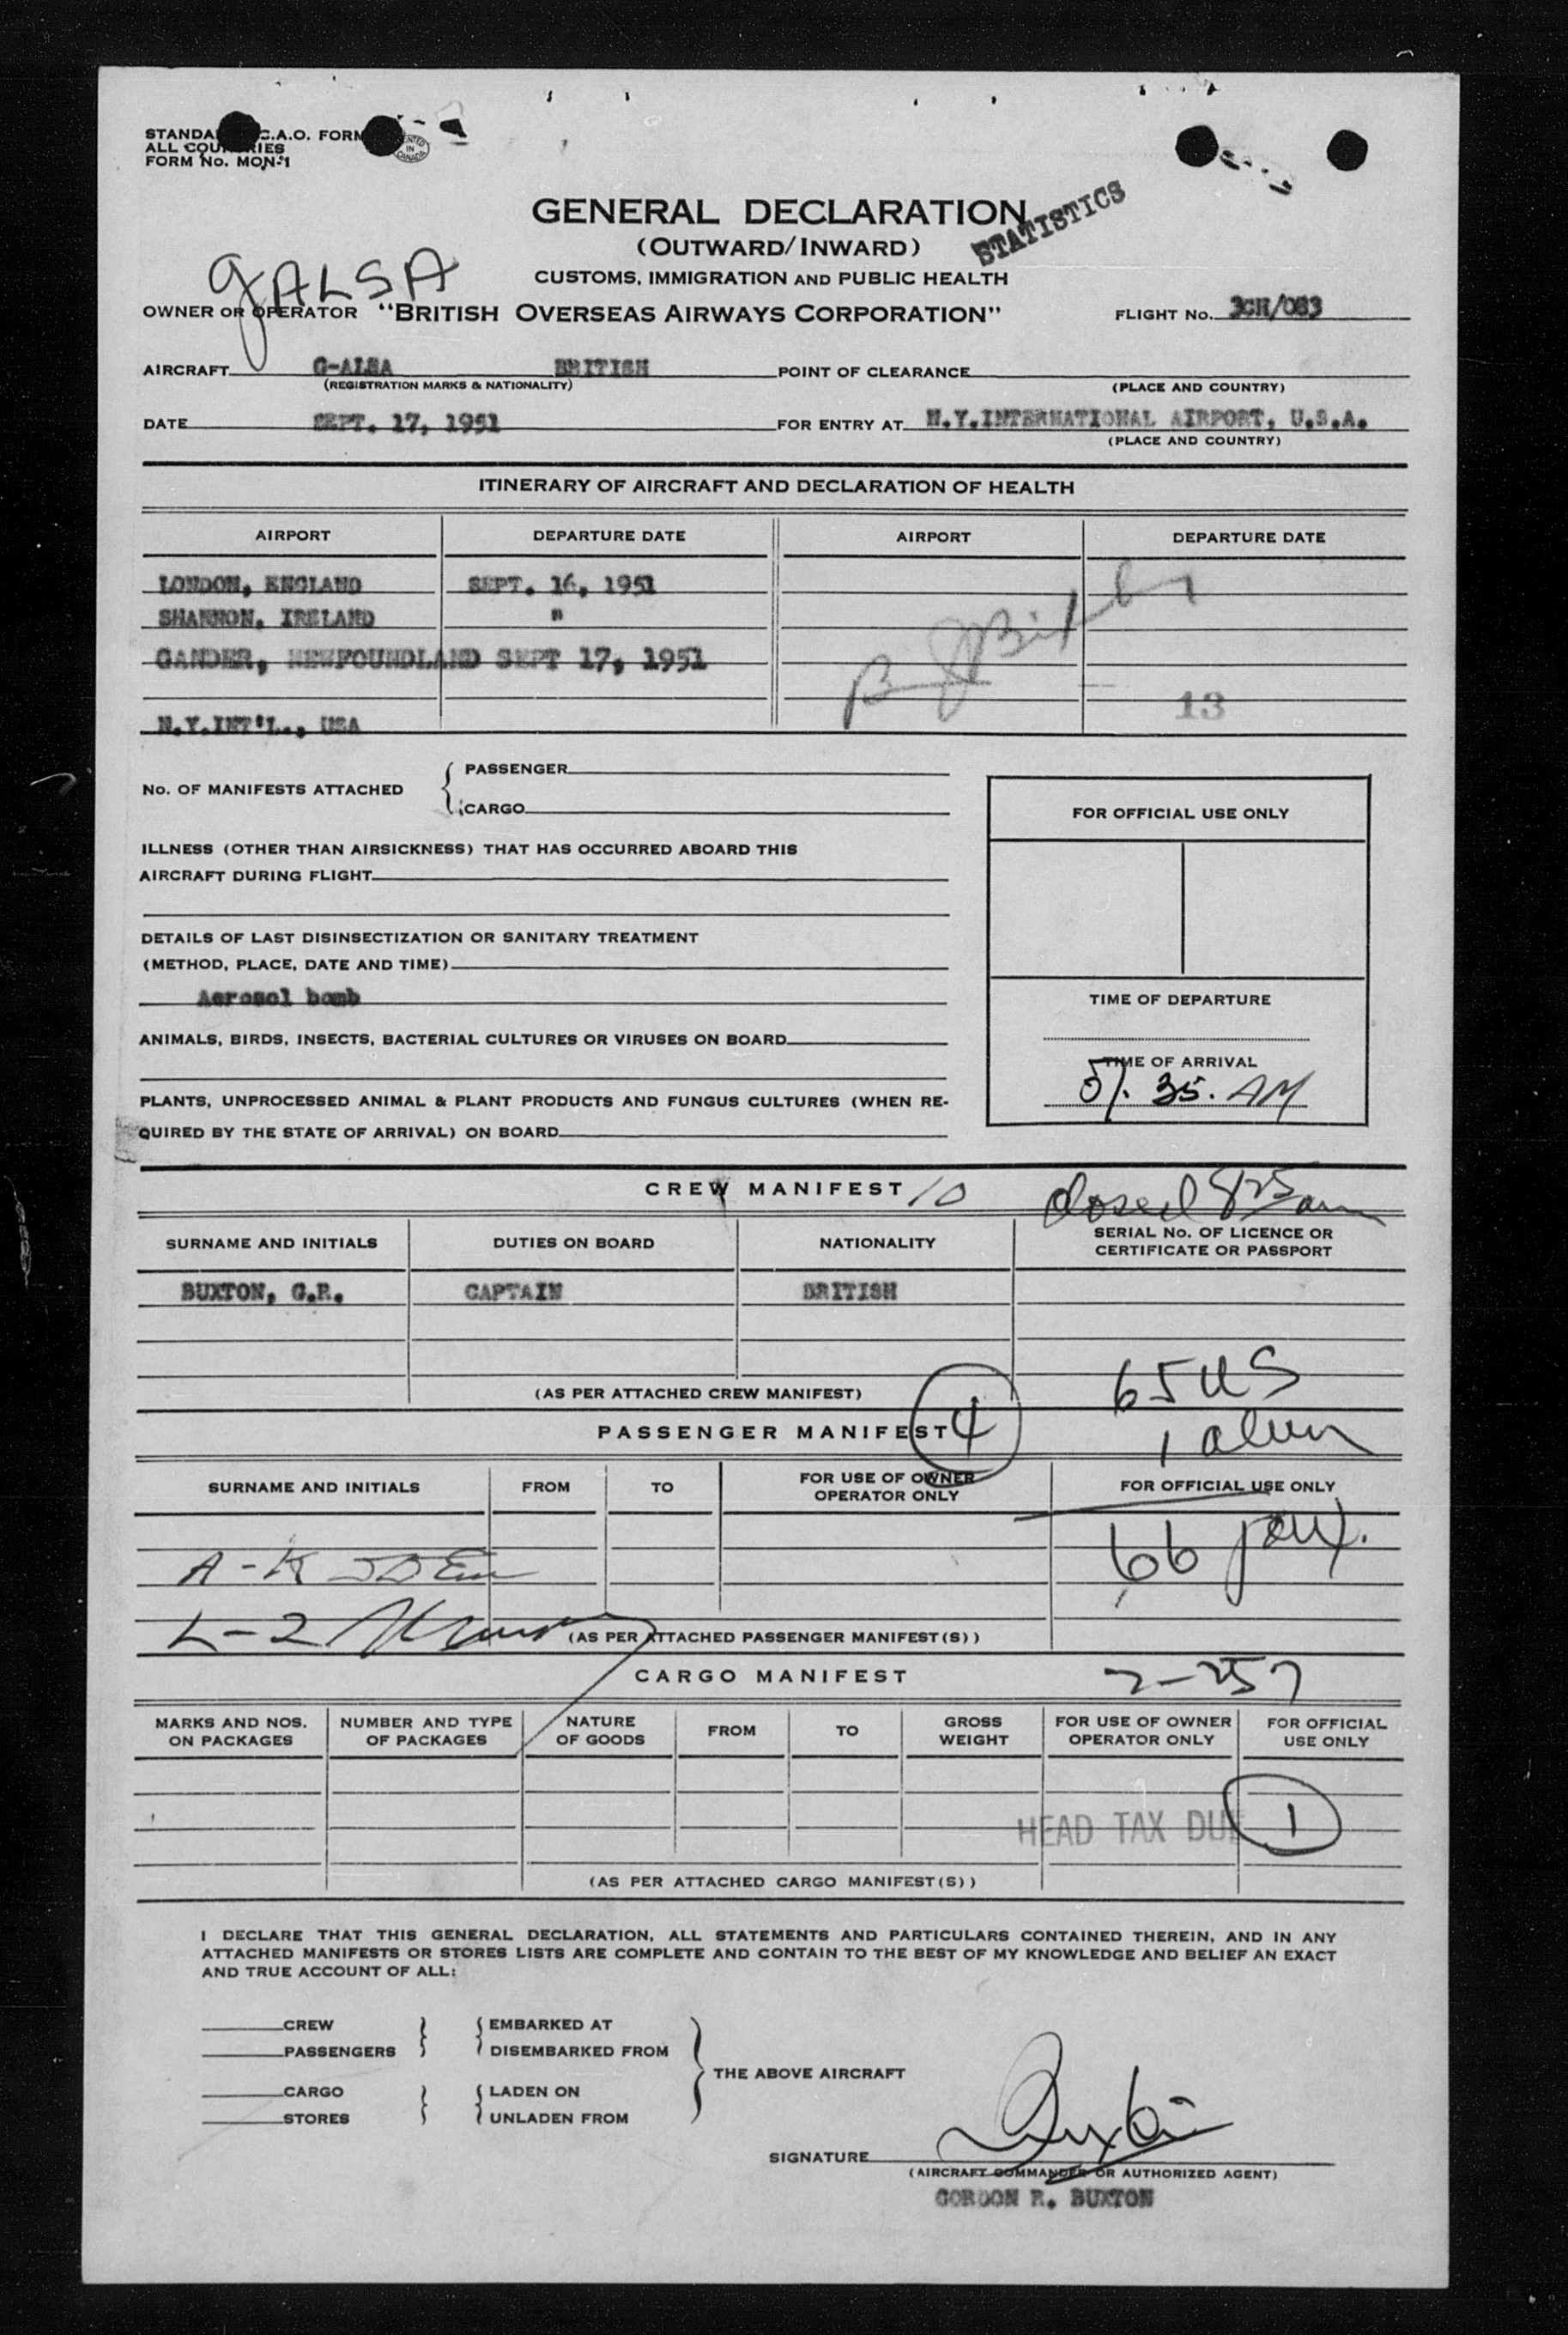 STANDA C.A.O. FORM
ALL COUNTRIES
FORM No. MON-1
PRINTED IN CANADA
GENERAL DECLARATION
STATISTICS
(OUTWARD/INWARD)
CUSTOMS, IMMIGRATION AND PUBLIC HEALTH
GALSA
OWNER OR OPERATOR "BRITISH OVERSEAS AIRWAYS CORPORATION" FLIGHT No.
AIRCRAFT G-ALSA BRITISH POINT OF CLEARANCE
(REGISTRATION MARKS & NATIONALITY) (PLACE AND COUNTRY)
DATE SEPT. 17, 1951 FOR ENTRY AT N.Y.INTERNATIONAL AIRPORT, U.S.A.
(PLACE AND COUNTRY)
ITINERARY OF AIRCRAFT AND DECLARATION OF HEALTH
AIRPORT DEPARTURE DATE AIRPORT DEPARTURE DATE
LONDON, ENGLAND SEPT. 16, 1951
SHANNON, IRELAND "
GANDER, NEWFOUNDLAND SEPT 17, 1951
13
N.Y.INT'L., USA
No. OF MANIFESTS ATTACHED { PASSENGER
CARGO
FOR OFFICIAL USE ONLY
ILLNESS (OTHER THAN AIRSICKNESS) THAT HAS OCCURRED ABOARD THIS
AIRCRAFT DURING FLIGHT
DETAILS OF LAST DISINSECTIZATION OR SANITARY TREATMENT
(METHOD, PLACE, DATE AND TIME)
Aerosol bomb
TIME OF DEPARTURE
ANIMALS, BIRDS, INSECTS, BACTERIAL CULTURES OR VIRUSES ON BOARD
TIME OF ARRIVAL
35. AM
PLANTS, UNPROCESSED ANIMAL & PLANT PRODUCTS AND FUNGUS CULTURES (WHEN RE-
QUIRED BY THE STATE OF ARRIVAL) ON BOARD
CREW MANIFEST 10 closed 825 am
SURNAME AND INITIALS DUTIES ON BOARD NATIONALITY SERIAL No. OF LICENCE OR
CERTIFICATE OR PASSPORT
BUXTON, G.R. CAPTAIN BRITISH
65 US
(AS PER ATTACHED CREW MANIFEST)
PASSENGER MANIFEST 4 1 alien
SURNAME AND INITIALS FROM TO FOR USE OF OWNER
OPERATOR ONLY FOR OFFICIAL USE ONLY
66 pax.
A-K
L-2
(AS PER ATTACHED PASSENGER MANIFEST(S))
CARGO MANIFEST 2-257
MARKS AND NOS.
ON PACKAGES NUMBER AND TYPE
OF PACKAGES NATURE
OF GOODS FROM TO GROSS
WEIGHT FOR USE OF OWNER
OPERATOR ONLY FOR OFFICIAL
USE ONLY
HEAD TAX DUE 1
(AS PER ATTACHED CARGO MANIFEST(S))
I DECLARE THAT THIS GENERAL DECLARATION, ALL STATEMENTS AND PARTICULARS CONTAINED THEREIN, AND IN ANY
ATTACHED MANIFESTS OR STORES LISTS ARE COMPLETE AND CONTAIN TO THE BEST OF MY KNOWLEDGE AND BELIEF AN EXACT
AND TRUE ACCOUNT OF ALL:
CREW } { EMBARKED AT
PASSENGERS DISEMBARKED FROM
} THE ABOVE AIRCRAFT
CARGO } { LADEN ON
STORES UNLADEN FROM
SIGNATURE Buxton
(AIRCRAFT COMMANDER OR AUTHORIZED AGENT)
GORDON R. BUXTON